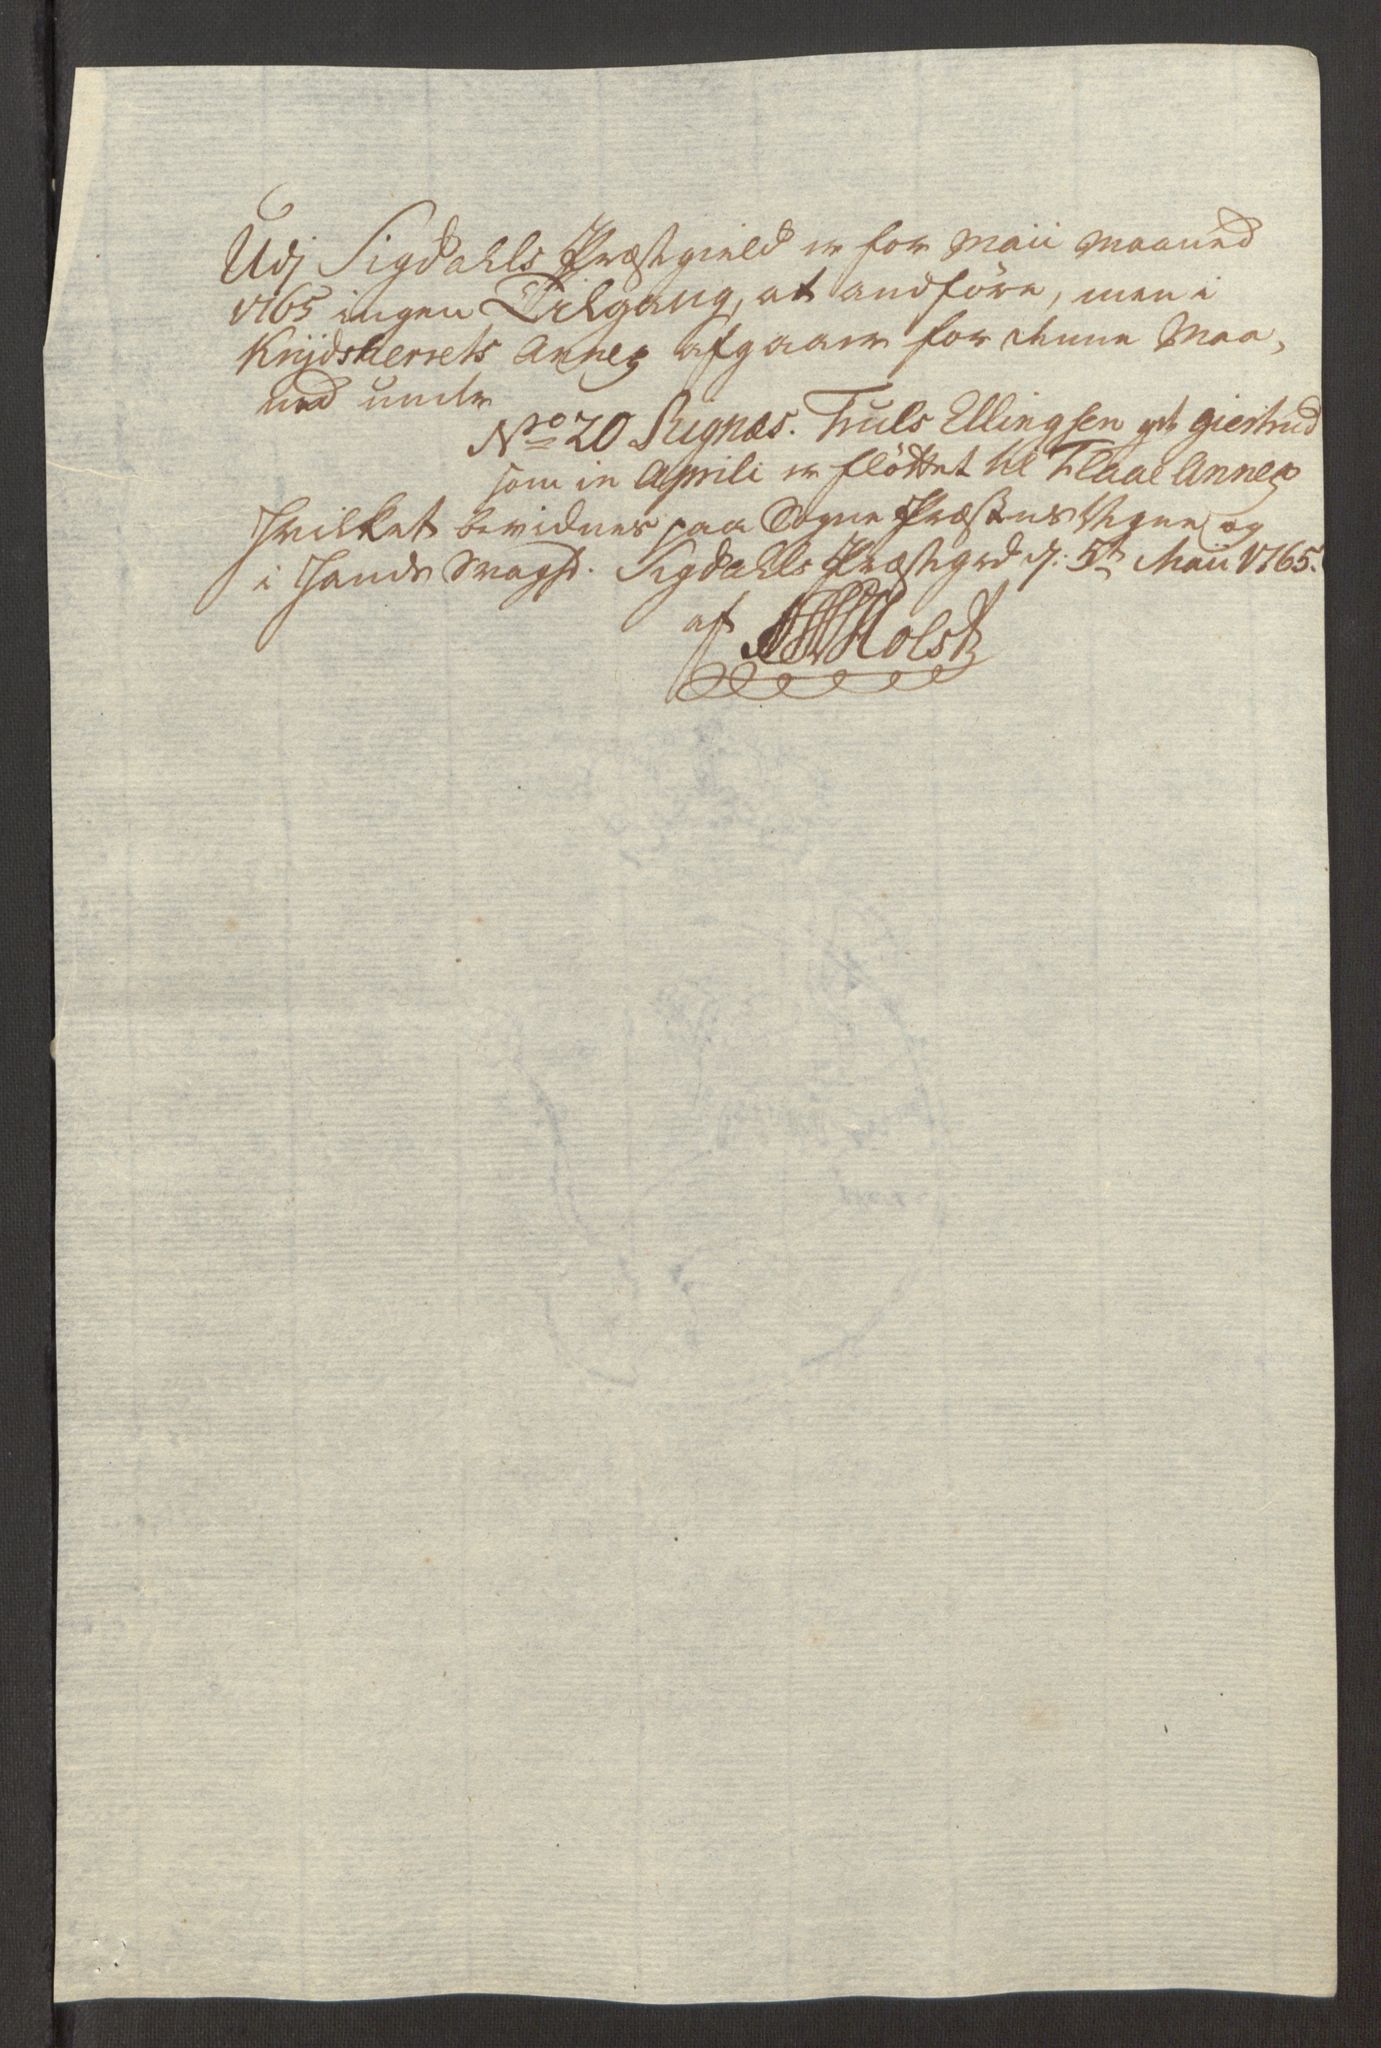 Udj Sigdahls Præstegield er for Maii Maaned
1765 ingen Tilgang, at andføre, men i
Krijdsherrets Annex afgaaer for denne Maa,
ned under
No 20 Rugnæs. Truls Ellingsen g.t Giertrud
som in Aprili er fløttet til Flaae Annex
Hvilket bevidnes paa Sogne Præstens Vegne og
i Hands Svagh. Sigdahls Præstegrd d: 5te Maii 1765.
af Holst